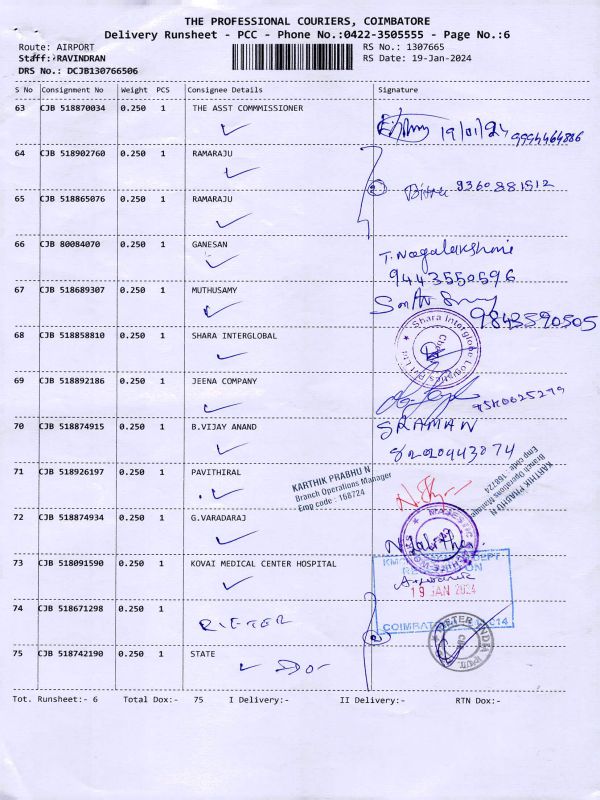 THE PROFESSIONAL COURIERS, COIMBATORE
Delivery Runsheet - PCC - Phone No.:0422-3505555 - Page No.:6
Route: AIRPORT
RS No.: 1307665
Staff: RAVINDRAN
RS Date: 19-Jan-2024
DRS No.: DCJB130766506
S No Consignment No Weight PCS Consignee Details Signature
63 CJB 518870034 0.250 1 THE ASST COMMMISSIONER
19/01/24 9994464886
64 CJB 518902760 0.250 1 RAMARAJU
2 9360881512
65 CJB 518865076 0.250 1 RAMARAJU
66 CJB 80084070 0.250 1 GANESAN
T. Nagalakshmi
9443550596
67 CJB 518689307 0.250 1 MUTHUSAMY
9843590505
68 CJB 518858810 0.250 1 SHARA INTERGLOBAL
Shara Interglobe Logistics Pvt Ltd
69 CJB 518892186 0.250 1 JEENA COMPANY
70 CJB 518874915 0.250 1 B.VIJAY ANAND
SRAMAN
71 CJB 518926197 0.250 1 PAVITHIRAL
KARTHIK PRABHU N
Branch Operations Manager
Emp code : 168724
KARTHIK PRABHU N
Branch Operations Manager
Emp code : 168724
72 CJB 518874934 0.250 1 G.VARADARAJ
MAJESTIC
73 CJB 518091590 0.250 1 KOVAI MEDICAL CENTER HOSPITAL
19 JAN 2024
74 CJB 518671298 0.250 1
RIETER
COIMBAT 014
2
75 CJB 518742190 0.250 1 STATE
-Do-
Tot. Runsheet:- 6 Total Dox:- 75 I Delivery:- II Delivery:- RTN Dox:-